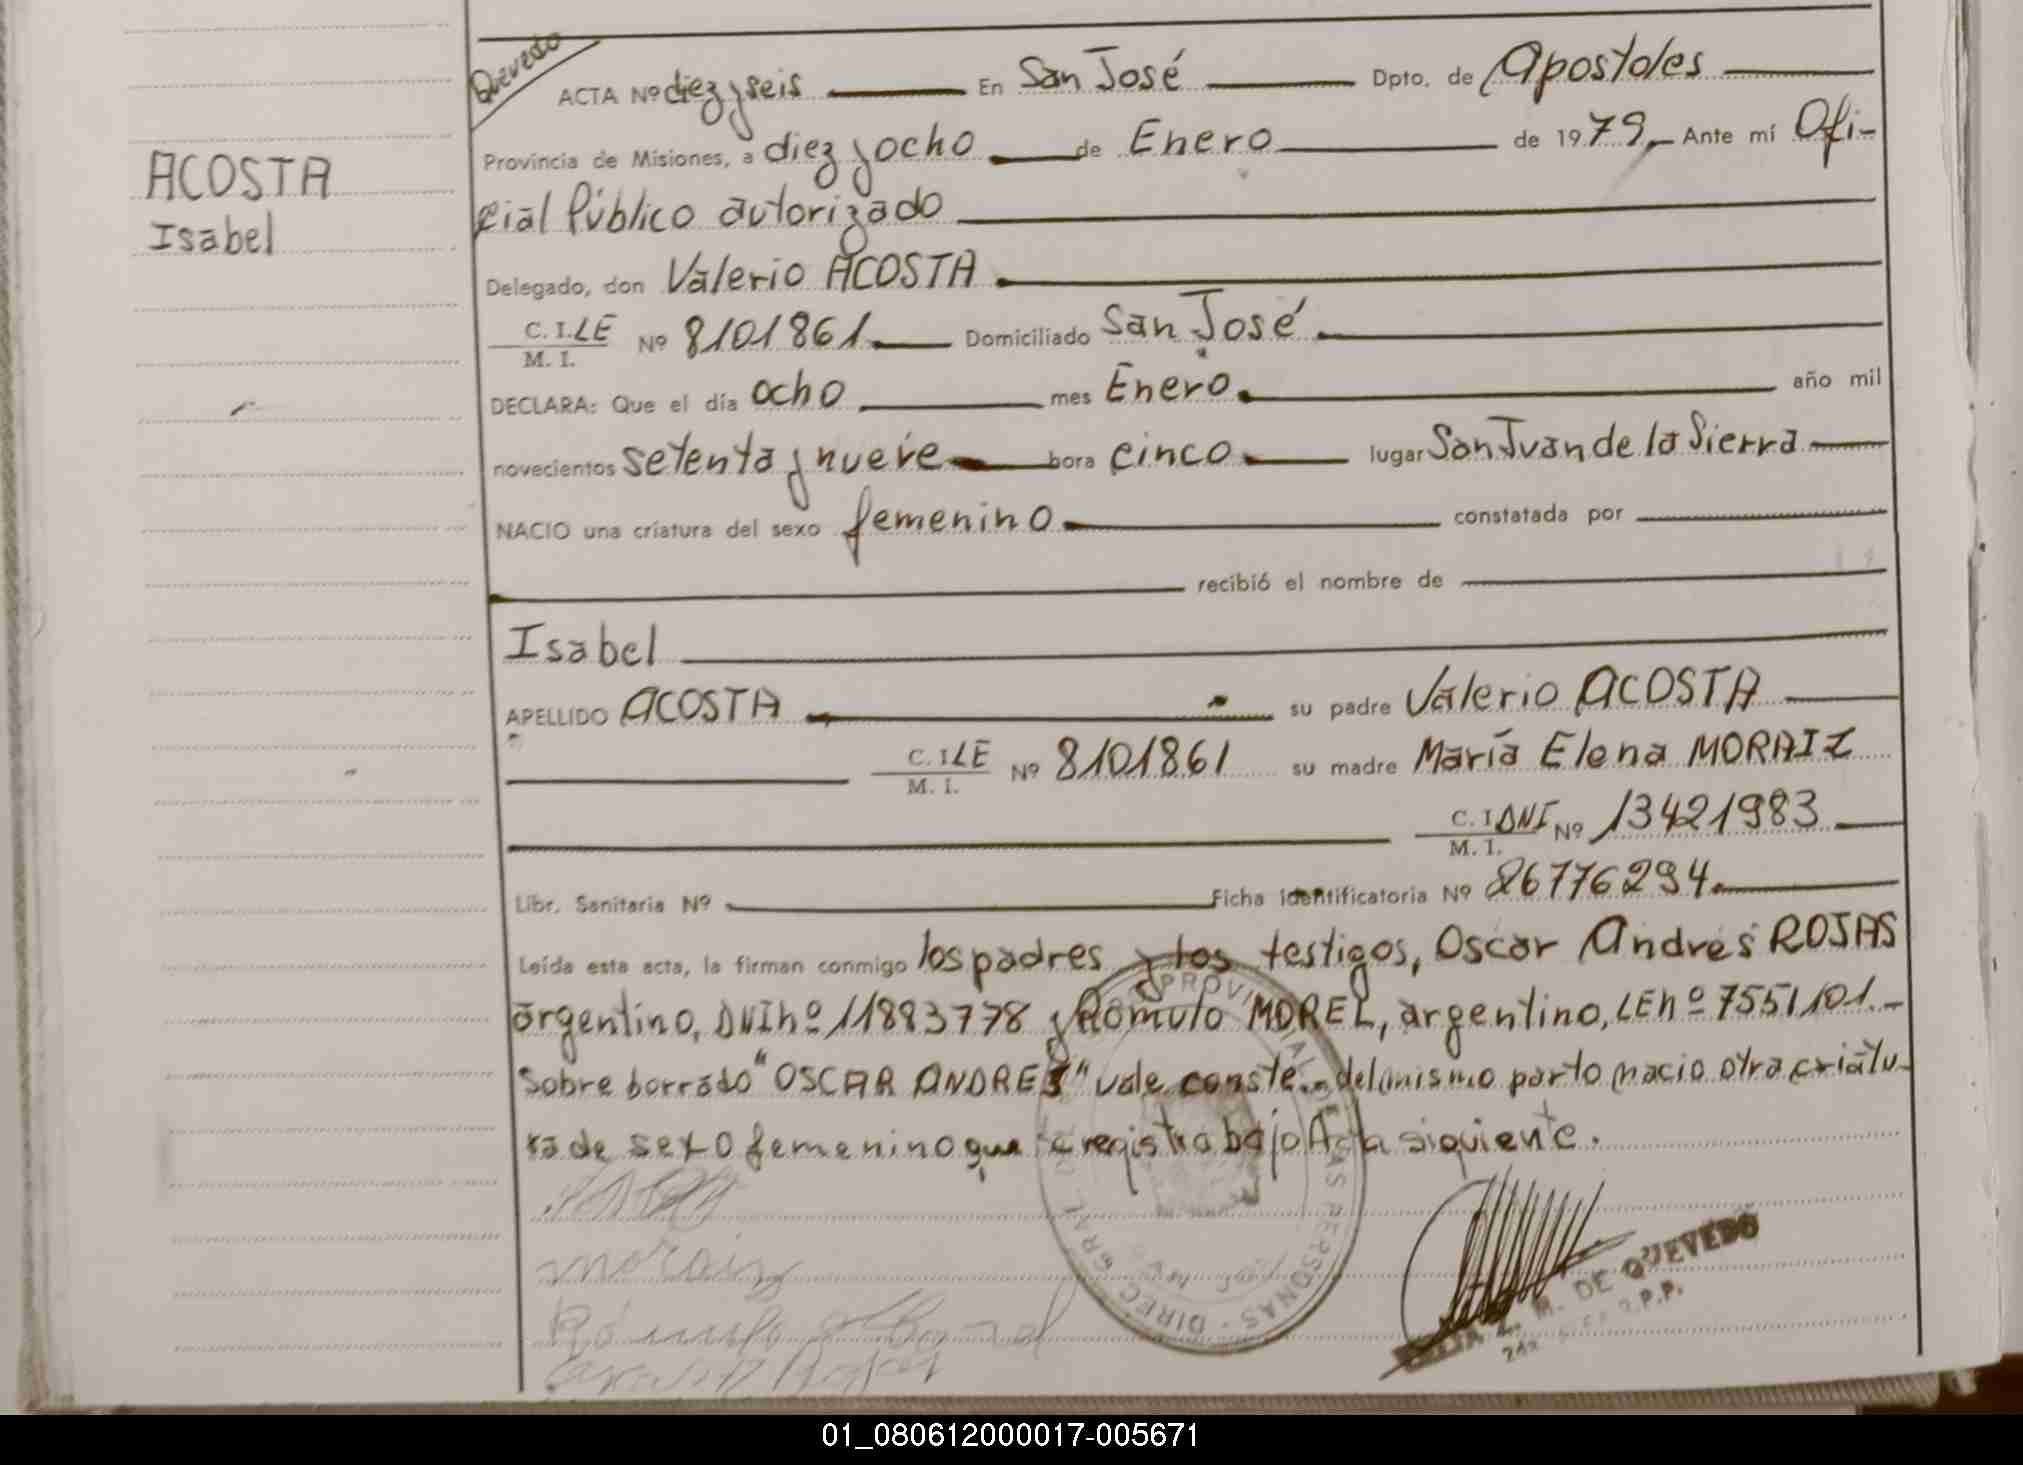 Quevedo
ACTA Nº diez y seis En San José Dpto. de Apostoles
Provincia de Misiones, a diez y ocho de Enero de 1979 Ante mí Ofi-
cial Público autorizado
ACOSTA
Isabel
Delegado, don Valerio ACOSTA
C. I. LE Nº 8101861 Domiciliado San José
M. I.
DECLARA: Que el día ocho mes Enero año mil
novecientos setenta y nueve hora cinco lugar San Juan de la Sierra
NACIO una criatura del sexo femenino constatada por
recibió el nombre de
Isabel
APELLIDO ACOSTA su padre Valerio ACOSTA
C. I. LE Nº 8101861 su madre María Elena MORAIZ
M. I.
C. I. DNI Nº 13421983
M. I.
Libr. Sanitaria Nº Ficha identificatoria Nº 86776294
Leída esta acta, la firman conmigo los padres y los testigos, Oscar Andres ROJAS
argentino, DNI nº 11883778 y Rómulo MOREL, argentino, LE nº 7551101.-
Sobre borrado "OSCAR ANDRES" vale conste.- del mismo parto nacio otra criatu-
ra de sexo femenino que se registra bajo Acta siguiente.
moraiz
DIREC. GRAL. PROVINCIAL DE LAS PERSONAS
M. DE QUEVEDO
01_080612000017-005671